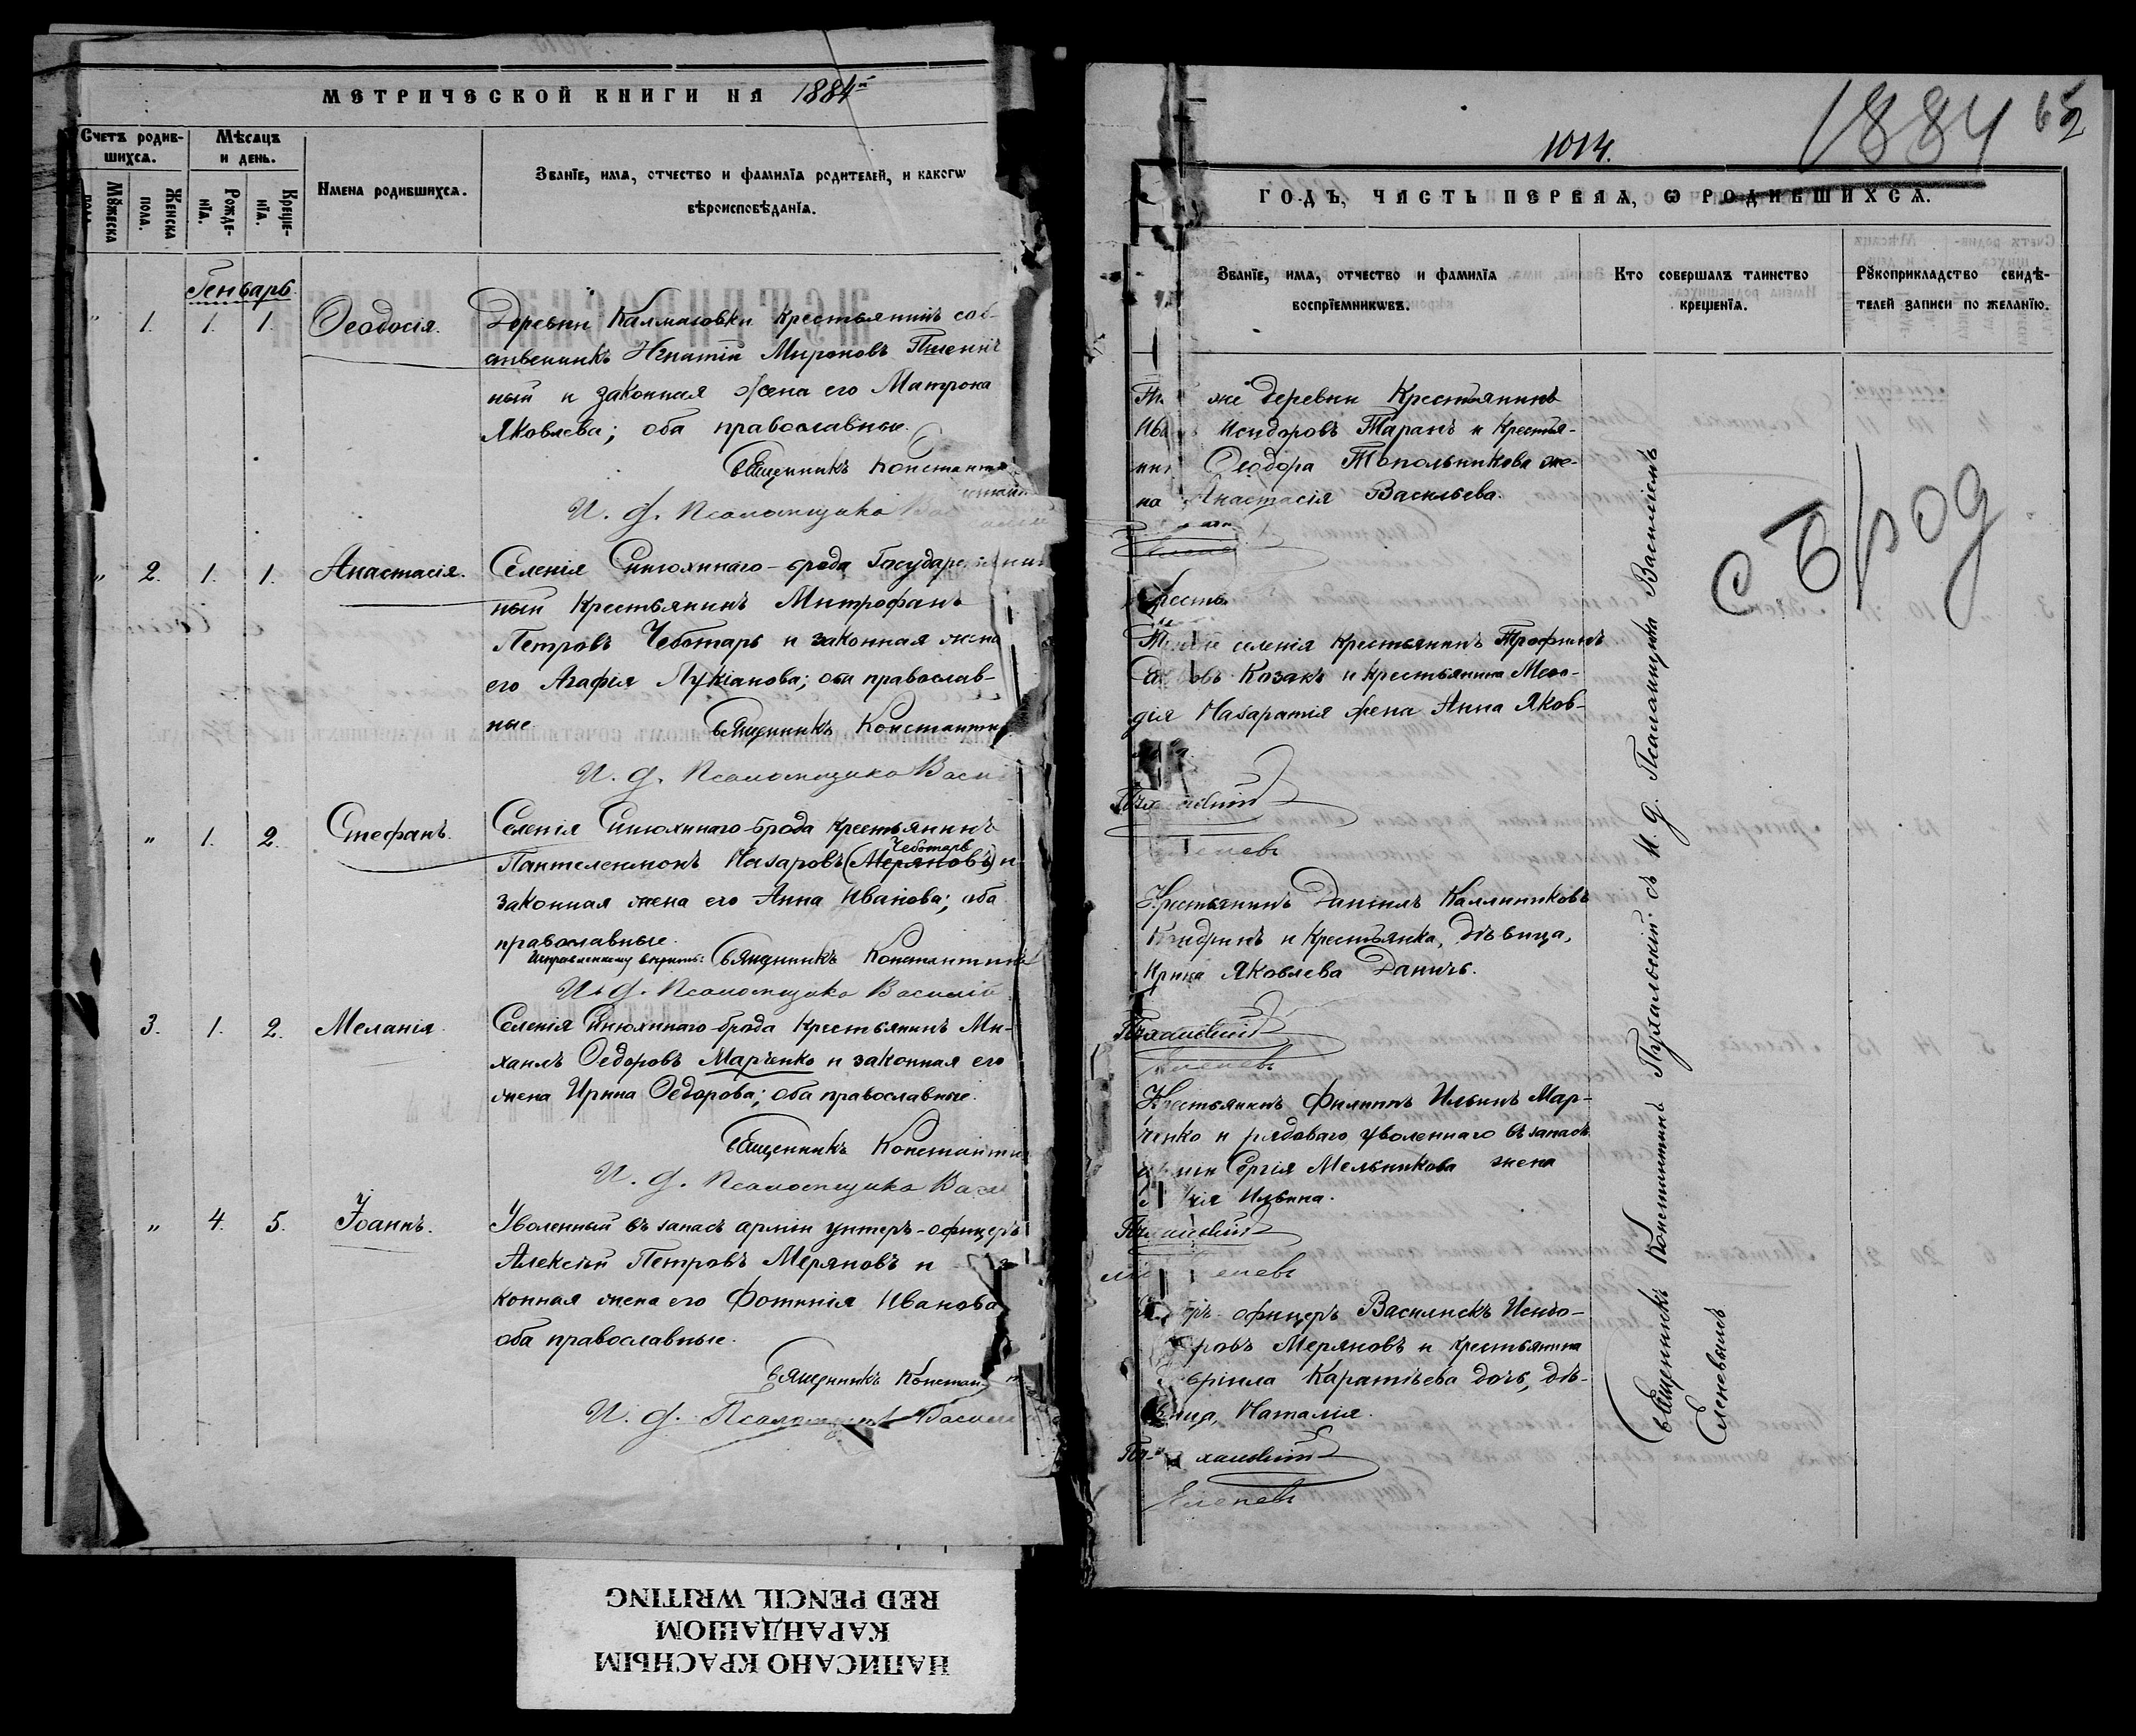 МЕТРИЧЕСКОЙ КНИГИ НА 1884й
Счетъ родив-
шихсѧ.
Мѣсяцъ
и день.
Имена родившихсѧ.
Званїе, имѧ, отчество и фамилїѧ родителей, и какогѡ
вѣроисповѣданїѧ.
Мꙋжеска
пола.
Женска
пола.
Рожде-
нїѧ.
Креще-
нїѧ.
Генварь.
" 1. 1. 1. Ѳеодосія. Деревни Калмазовки крестьянинъ соб-
ственникъ Игнатій Мироновъ Пшенич
ный и законная жена его Матрона
Яковлева; оба православные.
Священникъ Константи
И. д. Псаломщика Вас
" 2. 1. 1. Анастасія. Селенія Синюхинаго-брода Государствен
ный крестьянинъ Митрофанъ
Петровъ Чеботарь и законная жена
его Агафія Лукіанова; оба православ-
ные. Священникъ Константин
И. д. Псаломщика Васи
" 1. 2. Стефанъ. Селенія Синюхинаго-брода крестьянинъ
Чеботарь
Пантелеимонъ Назаровъ (Меряновъ) и
законная жена его Анна Иванова; оба
православные.
Исправленному вѣрить: Священникъ Константинъ
И. д. Псаломщика Василій
3. 1. 2. Меланія Селенія Синюхинаго-брода крестьянинъ Ми-
хаилъ Ѳедоровъ Марченко и законная его
жена Ирина Ѳедорова; оба православные.
Священникъ Константин
И. д. Псаломщика Васи
" 4. 5. Іоаннъ. Уволенный въ запасъ арміи унтеръ-офицеръ
Алексѣй Петровъ Меряновъ и за
конная жена его Фотинія Иванова
оба православные.
Священникъ Констан
И. д. Псаломщика Васил
1884 65
2
1014.
ГОДЪ, ЧАСТЬ ПЕРВАЯ, Ѡ РОДИВШИХСѦ.
Званїе, имѧ, отчество и фамилїѧ
воспрїемникѡвъ.
Кто совершалъ таинство
крещенїѧ.
Рꙋкоприкладство свидѣ-
телей записи по желанїю.
же деревни Крестьянинъ
Исидоровъ Таранъ и крестья-
Ѳеодора Топольникова же-
на Анастасія Васильева.
селенія крестьянинъ Трофимъ
Козакъ и крестьянина Меѳо-
дія Назаратія жена Анна Яков-
Крестьянинъ Даніилъ Каллиниковъ
и крестьянка, дѣвица,
Ирина Яковлева Даничъ.
Пухальскій
Еленевъ
Крестьянинъ Филиппъ Ильинъ Мар-
ченко и рядоваго, уволеннаго въ запасъ
арміи Сергія Мельникова жена
Ильина.
Пухальскій
еневъ
офицеръ Василискъ Исидо-
ровъ Меряновъ и крестьянина
Гавріила Каратѣева дочь, дѣ-
вица, Наталія.
Пухальскій
Еленевъ
Священникъ Константинъ Пухальскій съ И. д. Псаломщика Василіемъ
Еленевымъ
с Брод
НАПИСАНО КРАСНЫМ
КАРАНДАШОМ
RED PENCIL WRITING